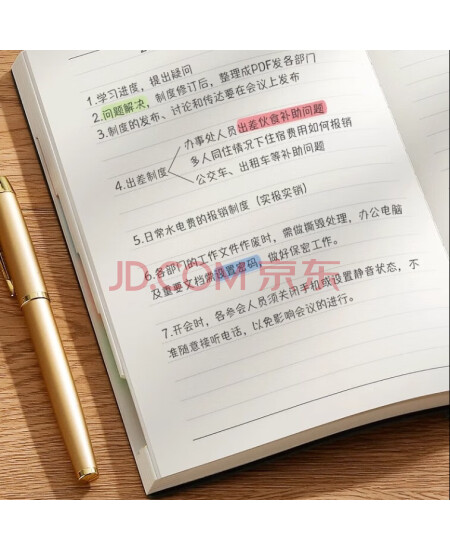 1.学习进度，提出疑问
2.问题解决，制度修订后，整理成PDF发各部门
3.制度的发布、讨论和传达要在会议上发布
4.出差制度
办事处人员出差饮食补助问题
多人同住情况下住宿费用如何报销
公交车、出租车等补助问题
5.日常水电费的报销制度（实报实销）
6.各部门的工作文件作废时，需做撕毁处理，办公电脑
及重要文档需设置密码，做好保密工作。
JD.COM 京东
7.开会时，各参会人员须关闭手机或设置静音状态，不
准随意接听电话，以免影响会议的进行。